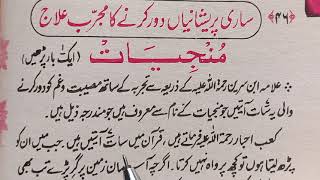 ﴿۴۶﴾ ساری پریشانیاں دور کرنے کا مجرّب علاج
مُنجِیَات (ایک بار پڑھیں)
علامہ ابن سیرین رحمۃ اللہ علیہ کے ذریعہ سے تجربہ کے ساتھ مصیبت و غم کو دور کرنے
والی یہ سات آیتیں جو منجیات کے نام سے معروف ہیں جو مندرجہ ذیل ہیں۔
کعب احبار رحمۃ اللہ علیہ فرماتے ہیں، قرآن میں سات آیتیں ہیں۔ جب میں ان کو
پڑھ لیتا ہوں تو کچھ پرواہ نہیں کرتا۔ اگرچہ آسمان زمین پر گر پڑے تب بھی